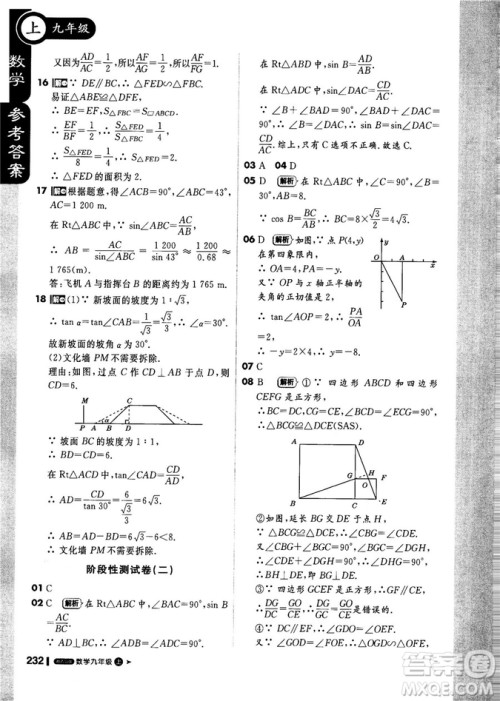 上 九年级
数学 参考答案
又因为AD/AC=AF/AG=1/2,所以AF/FG=1.
∵ DE//BC,∴ △FED∽△FBC.
易证△ABE≌△DFE,
∴ BE=EF,S△ABE=S△FED.
∴ EF/BF=1/2,∴ S△FED/S△FBC=1/4.
∴ S△FED/8=1/4,∴ S△FED=2.
∴ △FED的面积为2.
17 根据题意,得∠ACB=90°,
AC=1 200 m.
在Rt△ABC中,sin∠ABC=AC/AB,
∴ AB=AC/sin∠ABC=1 200/sin 43°≈1 200/0.68≈
1 765(m).
答:飞机A与指挥台B的距离为1 765 m.
18 (1)∵ 新坡面的坡度为1:√3,
∴ tan α=tan∠CAB=1/√3=√3/3,∴ α=30°.
故新坡面的坡角α为30°.
(2)文化墙PM不需要拆除.
理由如下:如图,过点C作CD⊥AB于点D,则CD=6.
C
P M A B D
∵ 坡面BC的坡度为1:1,
∴ BD=CD=6.
在Rt△ACD中,tan∠CAD=CD/AD,
∴ AD=CD/tan 30°=6/(√3/3)=6√3.
∴ AB=AD-BD=6√3-6<8.
∴ 文化墙PM不需要拆除.
阶段性测试卷(二)
01 C
02 C 解析 在Rt△ABC中,sin B=AC/BC.
∵ AD⊥BC,∴ ∠ADB=90°.
232 数学九年级 上
∴ 在Rt△ABD中,sin B=AD/AB.
∵ ∠B+∠BAD=90°,∠DAC+∠BAD=90°,
∴ ∠B=∠DAC.
∴ 在Rt△ADC中,sin B=sin∠DAC=DC/AC.
综上,只有C选项不正确.故选C.
03 A 04 D
05 D 解析 ∵ ∠A+∠B=90°,∠A=60°,
∴ ∠B=30°.
∵ cos B=BC/AB,∴ BC=8×√3/2=4√3.
06 D 解析 如图,∵ 点P(4,y)
在第四象限内,
∴ OA=4,PA=-y.
∵ OP与x轴正半轴的
夹角的正切值是2,
∴ tan∠AOP=2,即PA/OA=2.
∴ -y/4=2.∴ y=-8.
O A x
P
07 C
08 B 解析 ①∵ 四边形ABCD和四边形
CEFG是正方形,
∴ BC=DC,CG=CE,∠BCD=∠ECG=90°.
∴ △BCG≌△DCE(SAS).
A D
G H F
O
B C E
②如图,延长BG交DE于点H.
∵ △BCG≌△DCE,
∴ ∠CBG=∠CDE.
又∵ ∠CBG+∠BGC=90°,∠BGC=∠DGH,
∴ ∠CDE+∠DGH=90°.
∴ ∠DHG=90°.∴ BG⊥DE.
③∵ 四边形GCEF是正方形,∴ GF//CE.
∴ DG/DC=GO/CE.∴ DG/GC=GO/CE是错误的.
答案圈
MXQE.COM